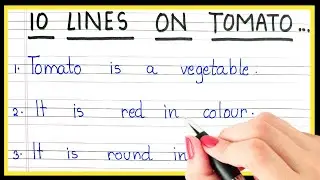 10 LINES ON TOMATO...
1. Tomato is a vegetable.
2. It is red in colour.
3. It is round in